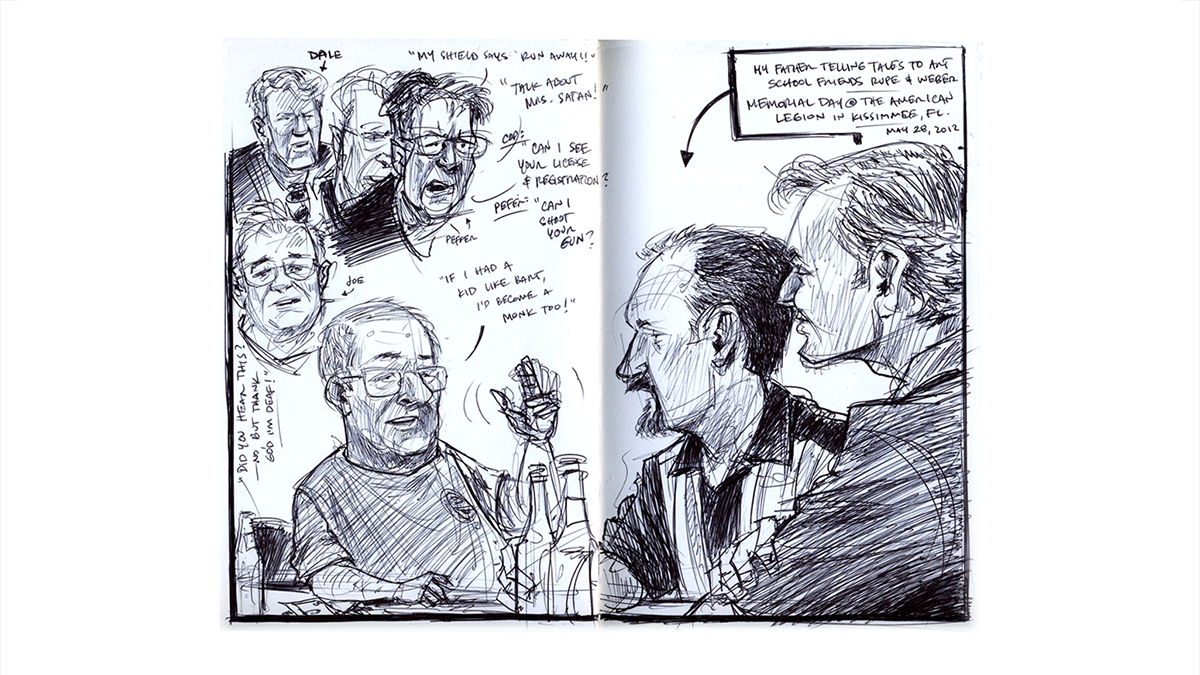 DALE
"MY SHIELD SAYS: 'RUN AWAY!!'"
"TALK ABOUT
MRS. SATAN!"
COP:
"CAN I SEE
YOUR LICENSE
& REGISTRATION?
PEFER: "CAN I
SHOOT
YOUR
GUN?
PEFFER
JOE
"IF I HAD A
KID LIKE BART,
I'D BECOME A
MONK TOO!"
"DID YOU HEAR THIS?
—NO, BUT THANK
GOD I'M DEAF!"
MY FATHER TELLING TALES TO ART
SCHOOL FRIENDS RUPE & WEBER
MEMORIAL DAY @ THE AMERICAN
LEGION IN KISSIMMEE, FL.
MAY 28, 2012